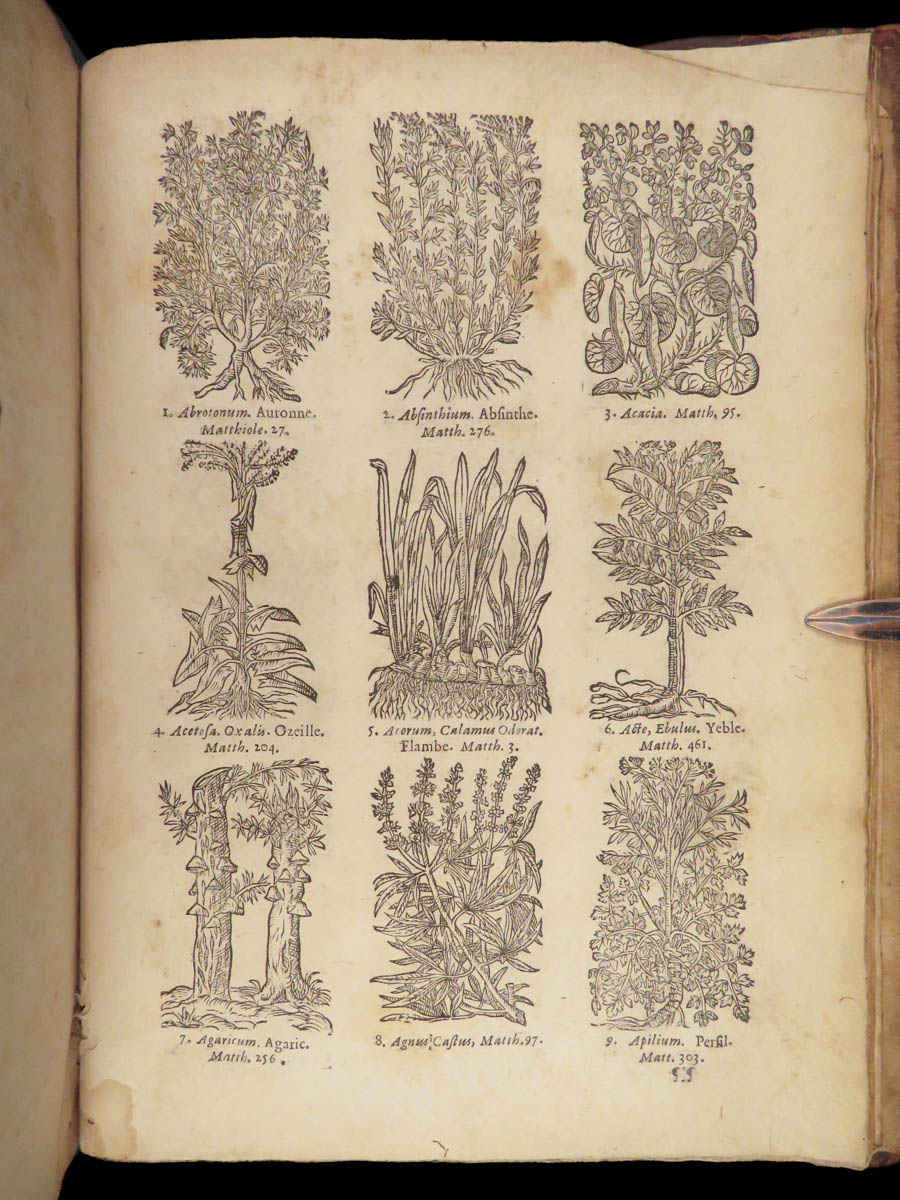 1. Abrotonum. Auronne.
Matthiole. 27.
2. Abſinthium. Abſinthe.
Matth. 276.
3. Acacia. Matth. 95.
4. Acetoſa. Oxalis. Ozeille.
Matth. 204.
5. Acorum, Calamus Odorat.
Flambe. Matth. 3.
6. Acte, Ebulus. Yeble.
Matth. 461.
7. Agaricum. Agaric.
Matth. 256.
8. Agnus Caſtus, Matth. 97.
9. Apilium. Perſil.
Matt. 303.
¶¶